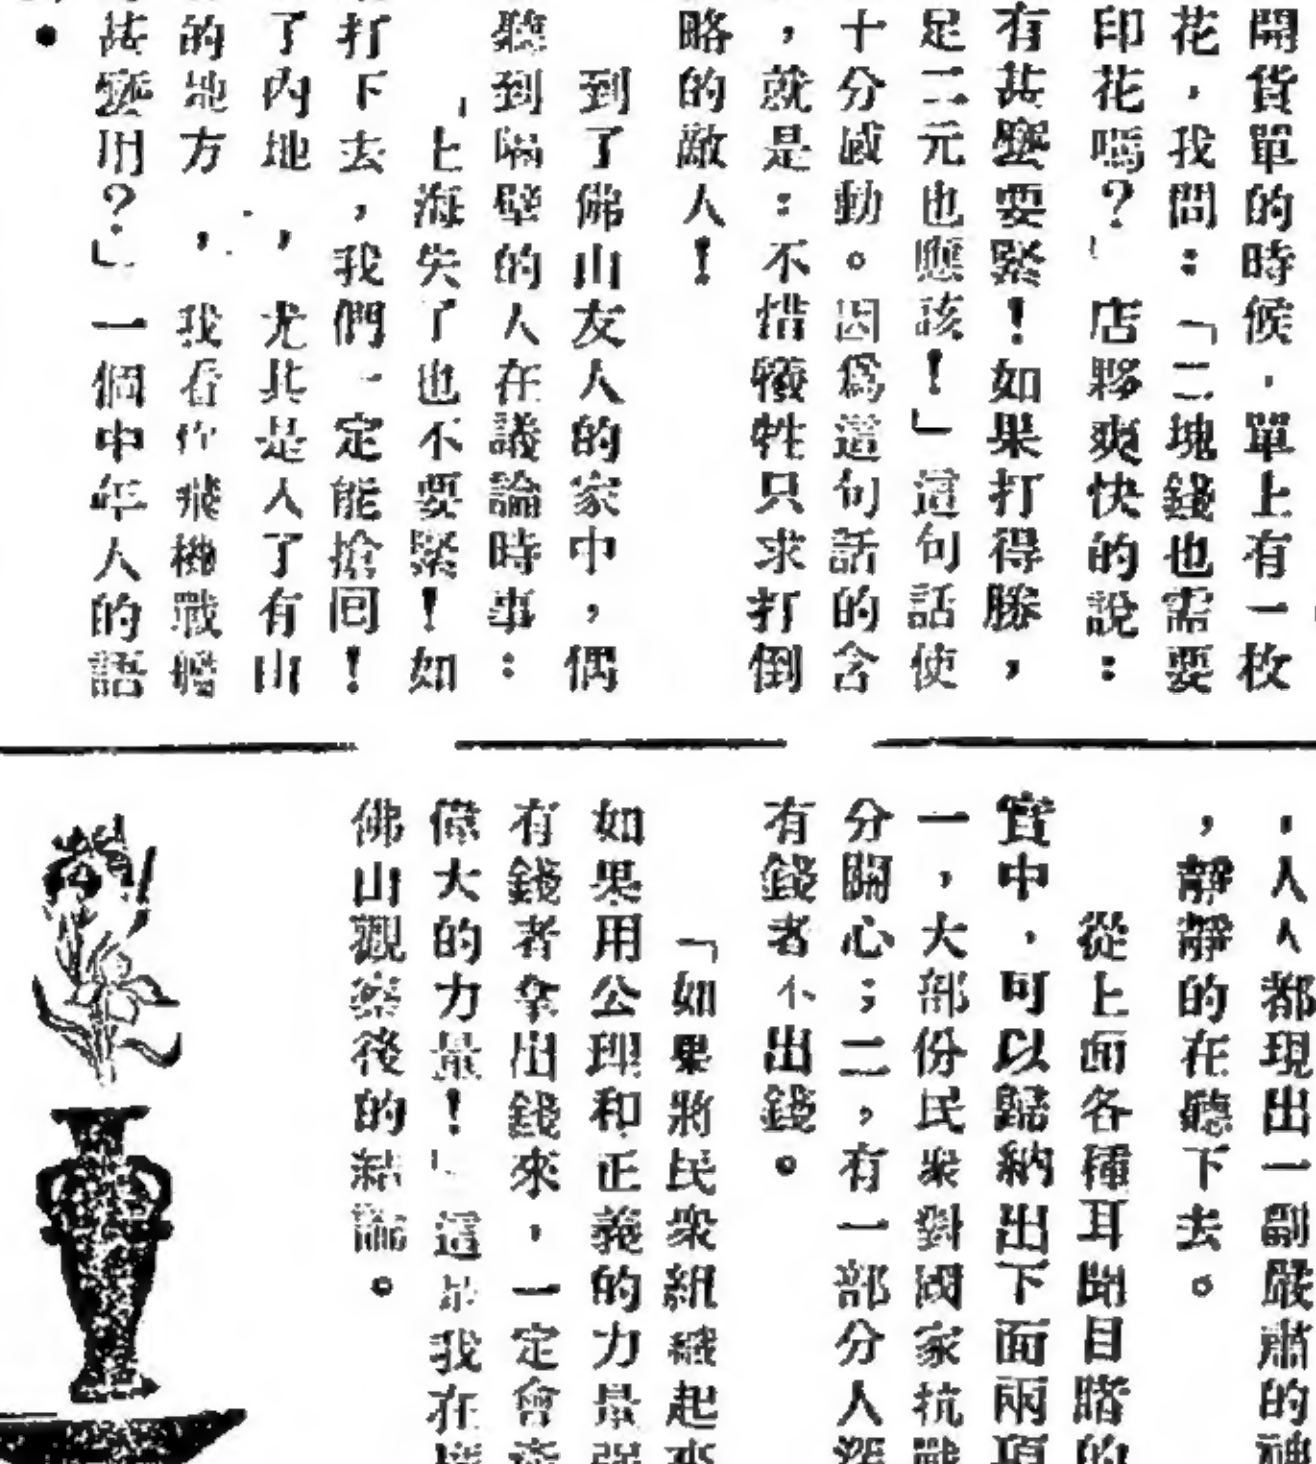 開貨單的時候，單上有一枚
花，我問：「二塊錢也需要
印花嗎？」店夥爽快的說：
有甚麼要緊！如果打得勝，
足二元也應該！」這句話使
十分感動。因爲這句話的含
，就是：不惜犧牲只求打倒
略的敵人！
到了佛山友人的家中，偶
聽到隔壁的人在議論時事：
「上海失了也不要緊！如
打下去，我們一定能搶回！
了內地，尤其是人了有山
的地方，我看你飛機戰艦
甚麼用？」一個中年人的語
，人人都現出一副嚴肅的神
，靜靜的在聽下去。
從上面各種耳聞目睹的
實中，可以歸納出下面兩項
一，大部份民衆對國家抗戰
分關心；二，有一部分人
有錢者不出錢。
「如果將民衆組織起來
如果用公理和正義的力量
有錢者拿出錢來，一定會
偉大的力量！」這是我在
佛山觀察後的結論。